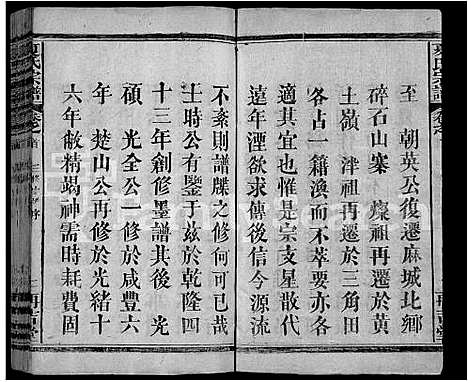 至　朝英公復遷麻城北鄉
碎石山寨　燦祖再遷於黄
土嶺　泮祖再遷於三角田
各占一籍渙而不萃要亦
適其宜也惟是宗支星散代
遠年湮欲求傳後信今源流
不紊則譜牒之修何可已哉
士時公有鑒于兹於乾隆四
十三年創修墨譜其後　光
　光全公一修於咸豐六
年　楚山公再修於光緒十
六年敝精竭神需時耗費固
氏宗譜